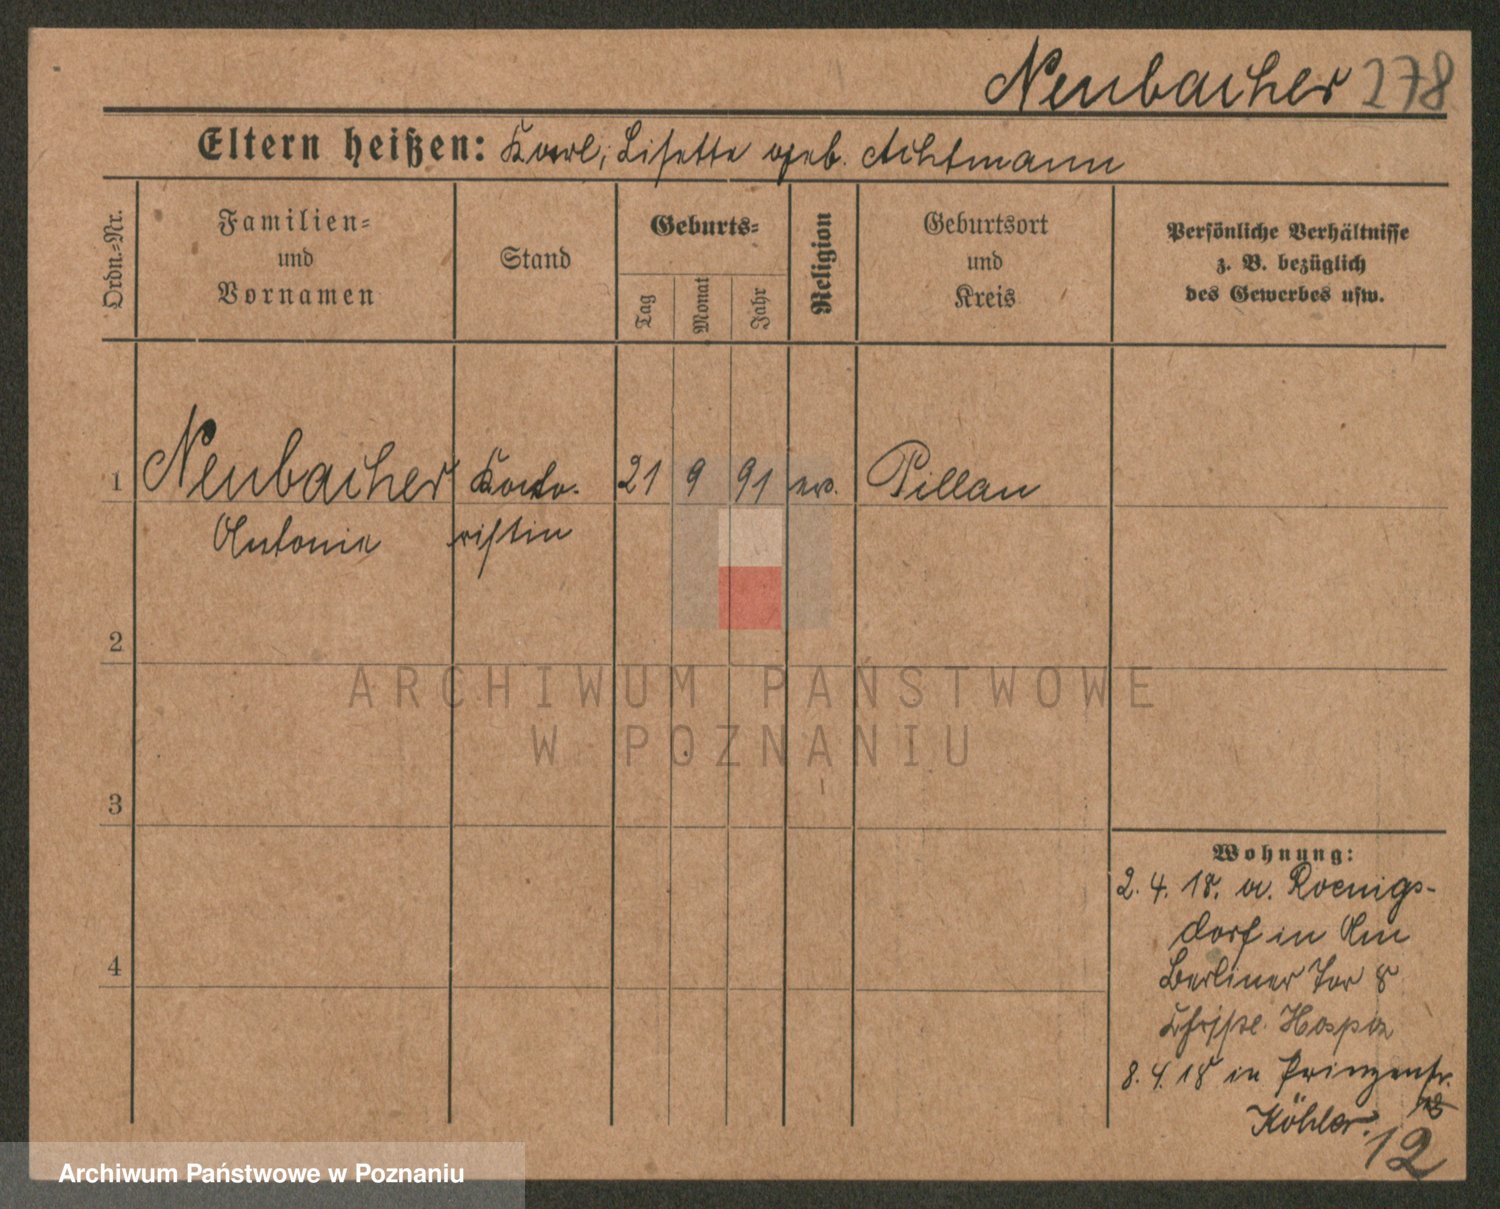 Neubacher 278
Eltern heißen: Karl, Lisette geb. Achtmann
Ordn.-Nr.
Familien-
und
Vornamen
Stand
Geburts-
Tag
Monat
Jahr
Religion
Geburtsort
und
Kreis
Persönliche Verhältnisse
z. B. bezüglich
des Gewerbes usw.
1 Neubacher Konto- 21 9 91 ev. Pillau
Antonie ristin
2
3
4
Wohnung:
2. 4. 18. a. Koenigs-
dorf in Am
Berliner Tor 8
Christl. Hospiz
8. 4. 18 in Prinzenstr.
Köhler.
12
ARCHIWUM PAŃSTWOWE
W POZNANIU
Archiwum Państwowe w Poznaniu